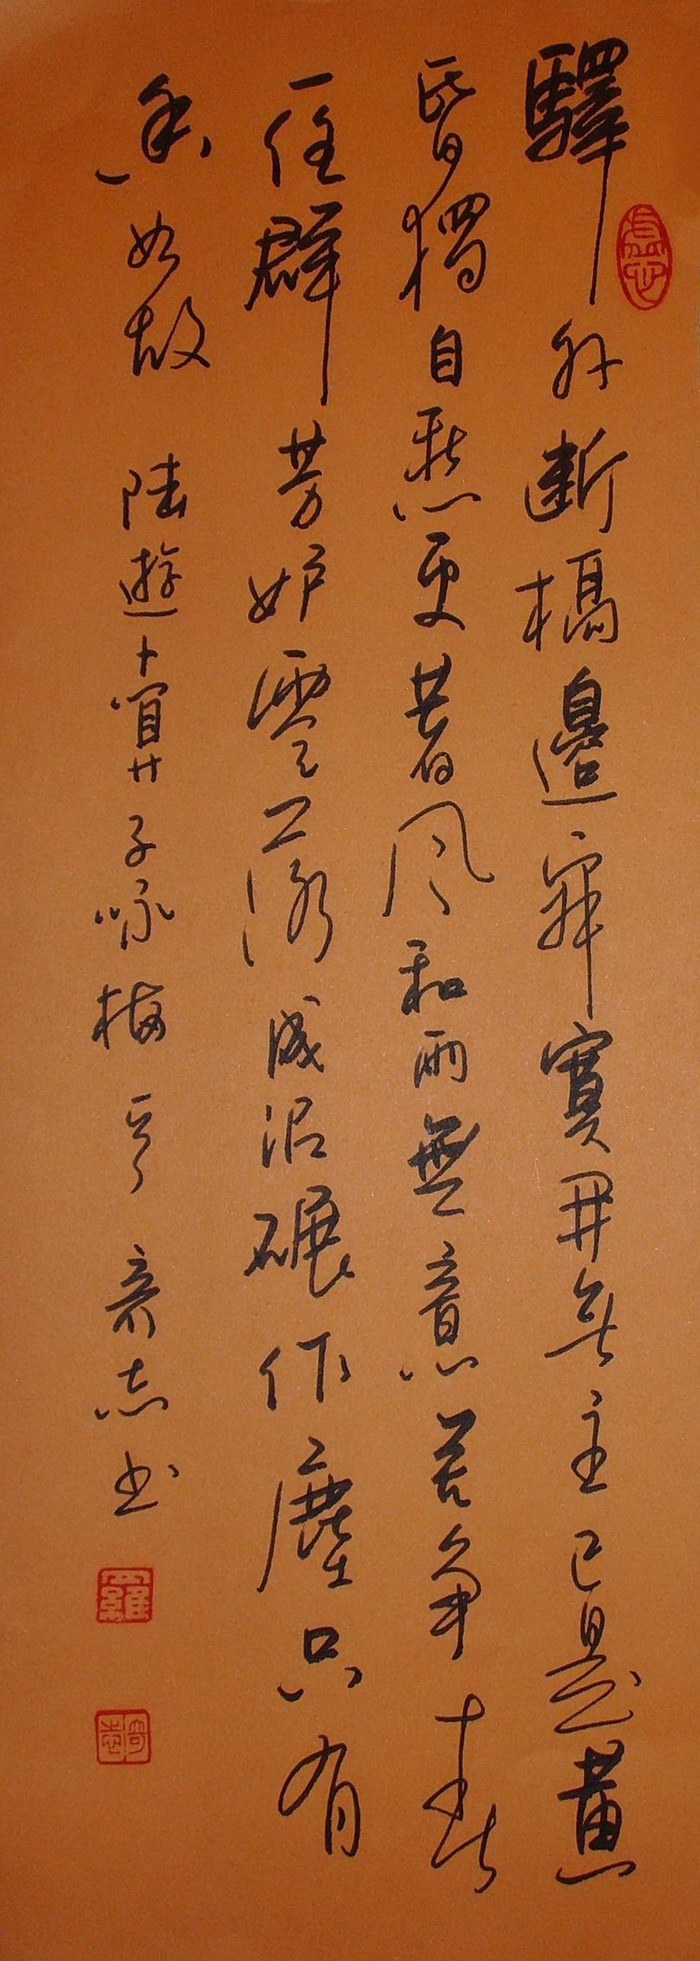 驛外断橋邊寂寞開無主已是黄
昏獨自愁更著風和雨無意苦爭春
一任群芳妒零落成泥碾作塵只有
香如故 陸遊卜算子咏梅 奇志书
羅
奇志